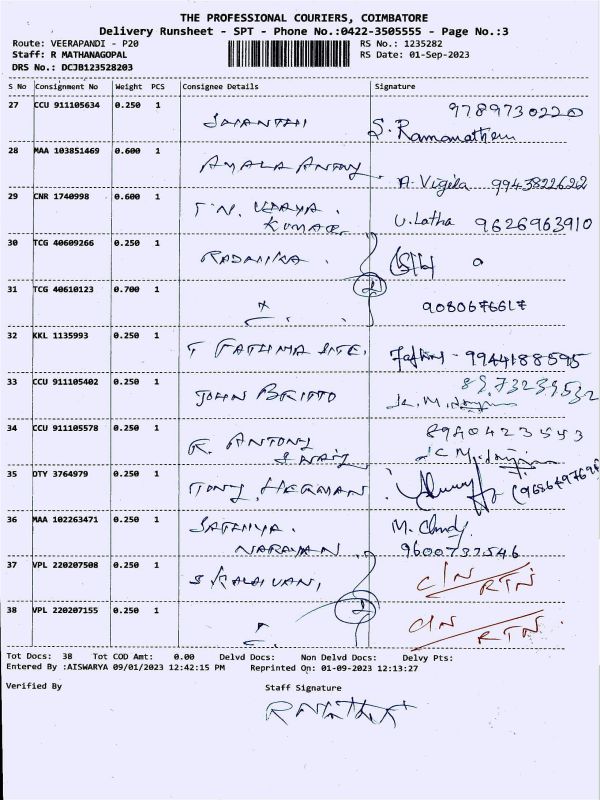 THE PROFESSIONAL COURIERS, COIMBATORE
Delivery Runsheet - SPT - Phone No.:0422-3505555 - Page No.:3
Route: VEERAPANDI - P20
RS No.: 1235282
Staff: R MATHANAGOPAL
RS Date: 01-Sep-2023
DRS No.: DCJB123528203
S No Consignment No Weight PCS Consignee Details Signature
27 CCU 911105634 0.250 1 9789730220
S. Ramanathan
28 MAA 103851469 0.600 1 AMALA ANTONY
A. Vigila 9943822622
29 CNR 1740998 0.600 1 T.N. VIJAYA.
KUMAR
U. Latha 9626963910
30 TCG 40609266 0.250 1 RADHIKA.
31 TCG 40610123 0.700 1 2
9080676617
32 KKL 1135993 0.250 1 T FATHIMA 9944188595
33 CCU 911105402 0.250 1 JOHN BRITTO
8973239532
34 CCU 911105578 0.250 1 8940423553
R. ANTONY
35 DTY 3764979 0.250 1 TONY HERMAN
36 MAA 102263471 0.250 1 SATHIYA.
NARAYAN
M.
9600737546
37 VPL 220207508 0.250 1 S KALAIVANI, C/N
RTN
38 VPL 220207155 0.250 1 2 C/N
RTN
Tot Docs: 38 Tot COD Amt: 0.00 Delvd Docs: Non Delvd Docs: Delvy Pts:
Entered By :AISWARYA 09/01/2023 12:42:15 PM Reprinted On: 01-09-2023 12:13:27
Verified By Staff Signature